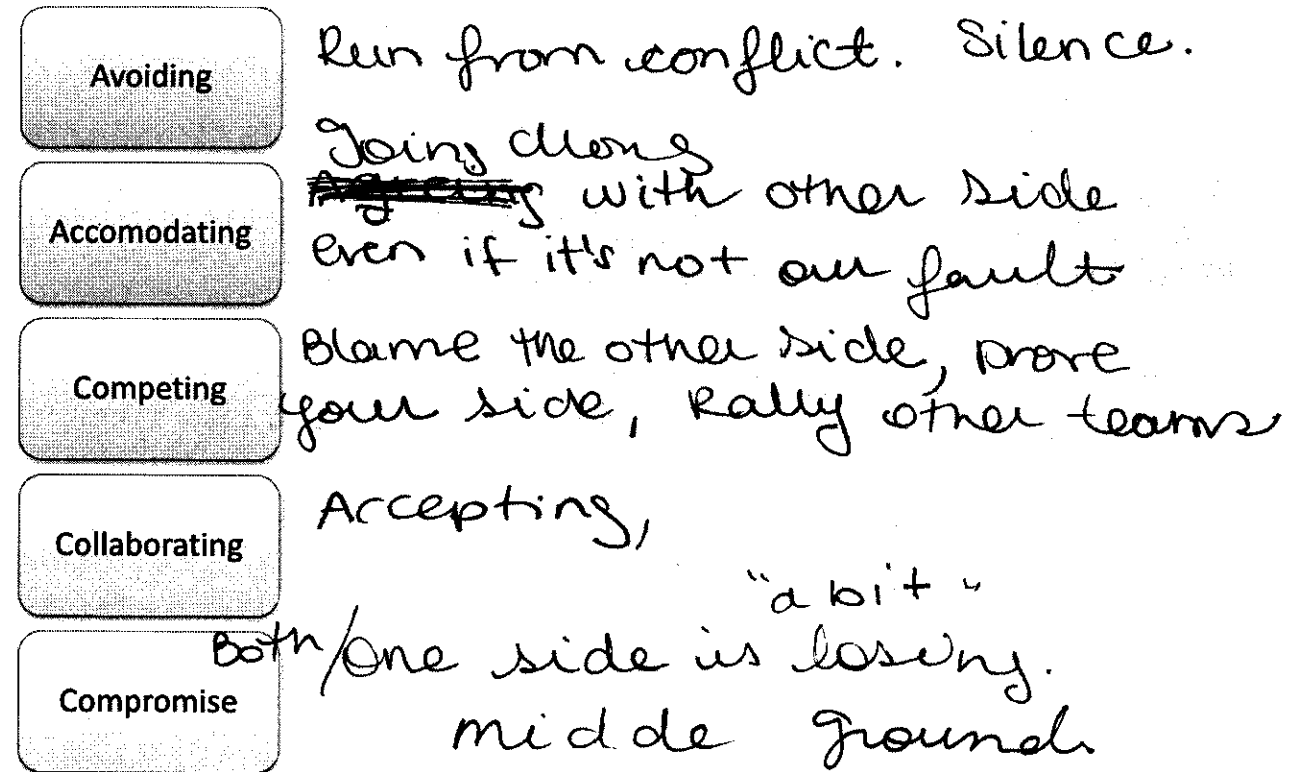 Avoiding
Run from conflict. Silence.
Accomodating
Going along
Agreeing with other side
even if it's not our fault
Competing
Blame the other side, prove
your side, Rally other teams
Collaborating
Accepting,
Compromise
"a bit"
Both/One side is losing.
midde ground.